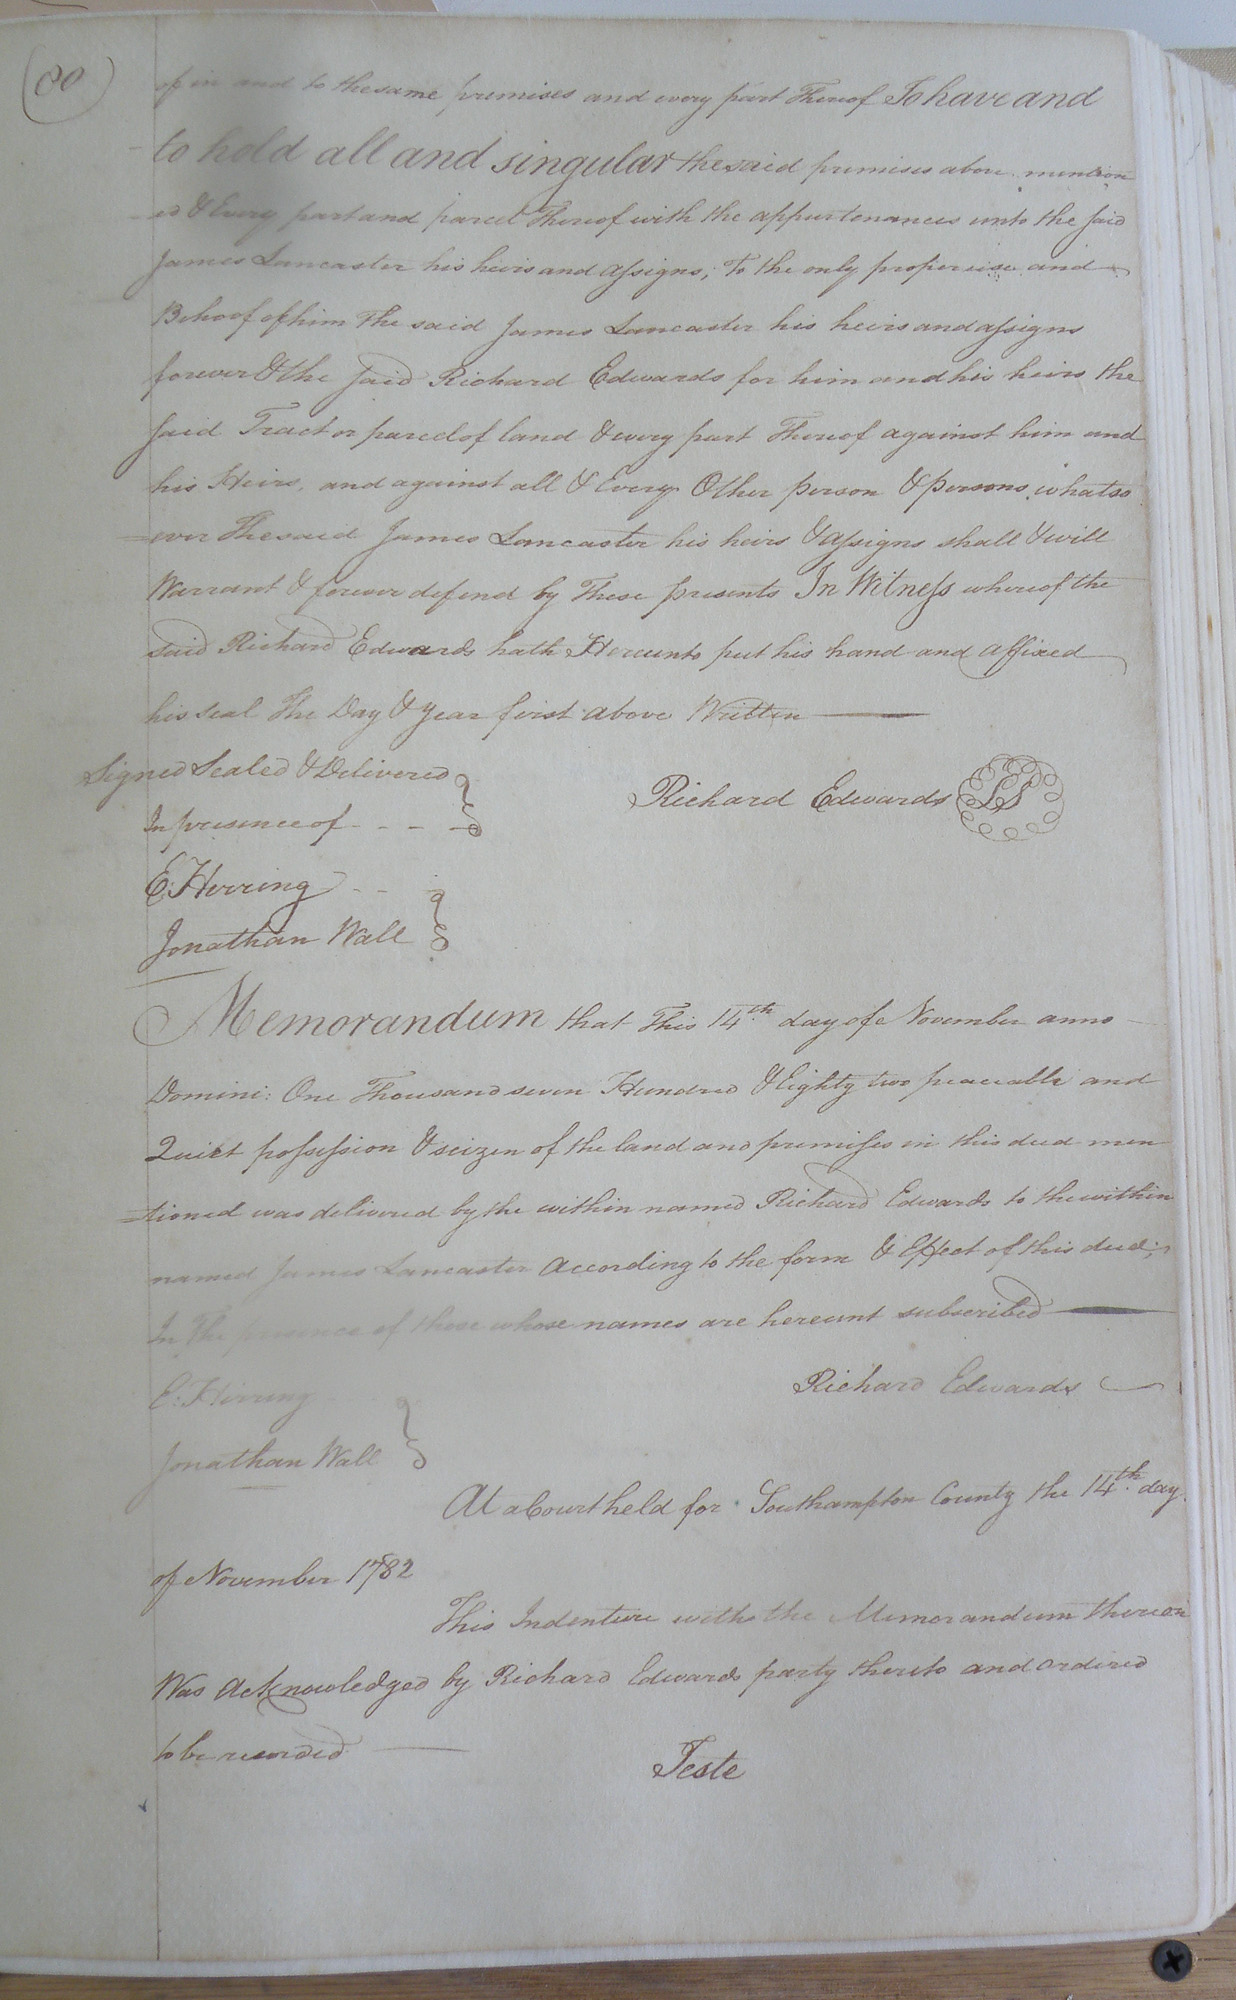 (80)
of in and to the same premises and every part Thereof To have and
to hold all and singular the said premises above mention
ed & Every part and parcel Thereof with the appurtenances unto the said
James Lancaster his heirs and assigns, To the only proper use and
Behoof of him The said James Lancaster his heirs and assigns
forever & the said Richard Edwards for him and his heirs the
said Tract or parcel of land & every part Thereof against him and
his Heirs, and against all & Every Other person & persons whatso
=ever The said James Lancaster his heirs & assigns shall & will
Warrant & forever defend by These presents In Witness whereof the
said Richard Edwards hath Hereunto put his hand and affixed
his seal The Day & year first above Written
Signed Sealed & Delivered
In presence of - - - -
Richard Edwards LS
E: Herring - -
Jonathan Wall
Memorandum that This 14th day of November anno
Domini: One Thousand seven Hundred & Eighty two peaceable and
Quiet possession & seizen of the land and premises in this deed men
=tioned was delivered by the within named Richard Edwards to the within
named James Lancaster According to the form & Effect of this deed;
In The presence of those whose names are hereunt subscribed
Richard Edwards
E: Herring
Jonathan Wall
At a Court held for Southampton County the 14th day
of November 1782
This Indenture with the Memorandum thereon
Was Acknowledged by Richard Edwards party thereto and ordered
to be recorded
Teste